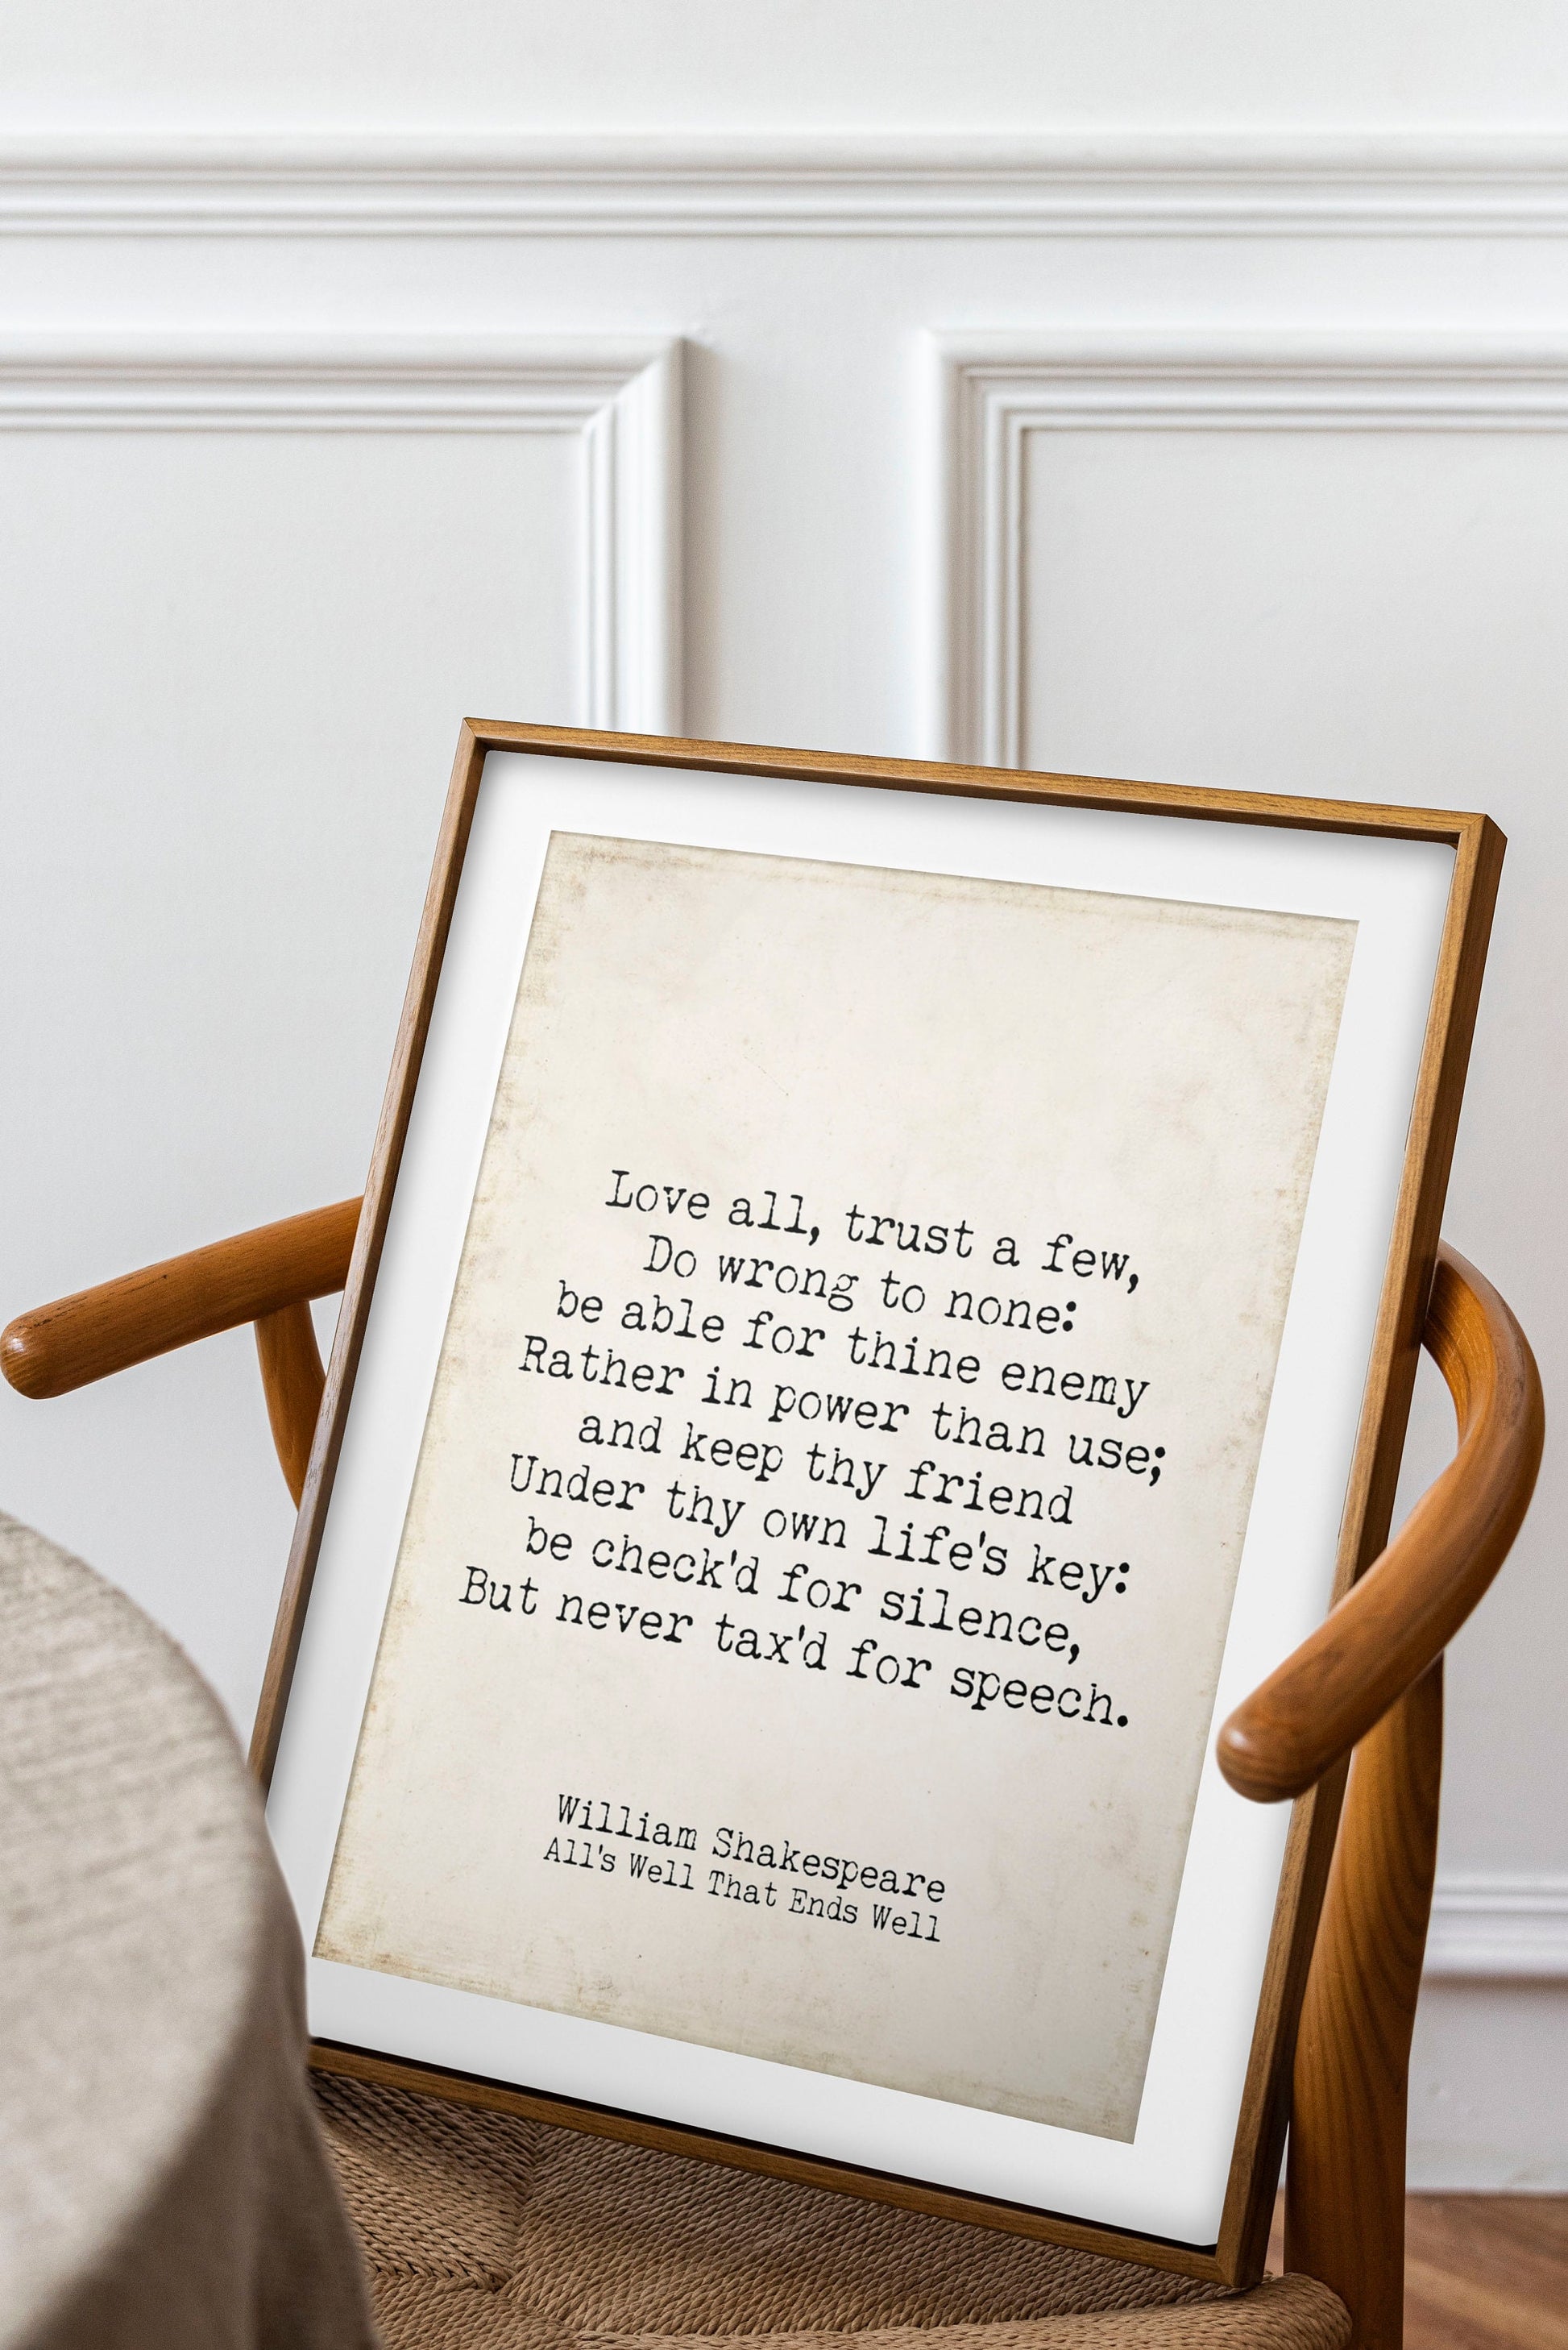 Love all, trust a few,
Do wrong to none:
be able for thine enemy
Rather in power than use;
and keep thy friend
Under thy own life's key:
be check'd for silence,
But never tax'd for speech.
William Shakespeare
All's Well That Ends Well